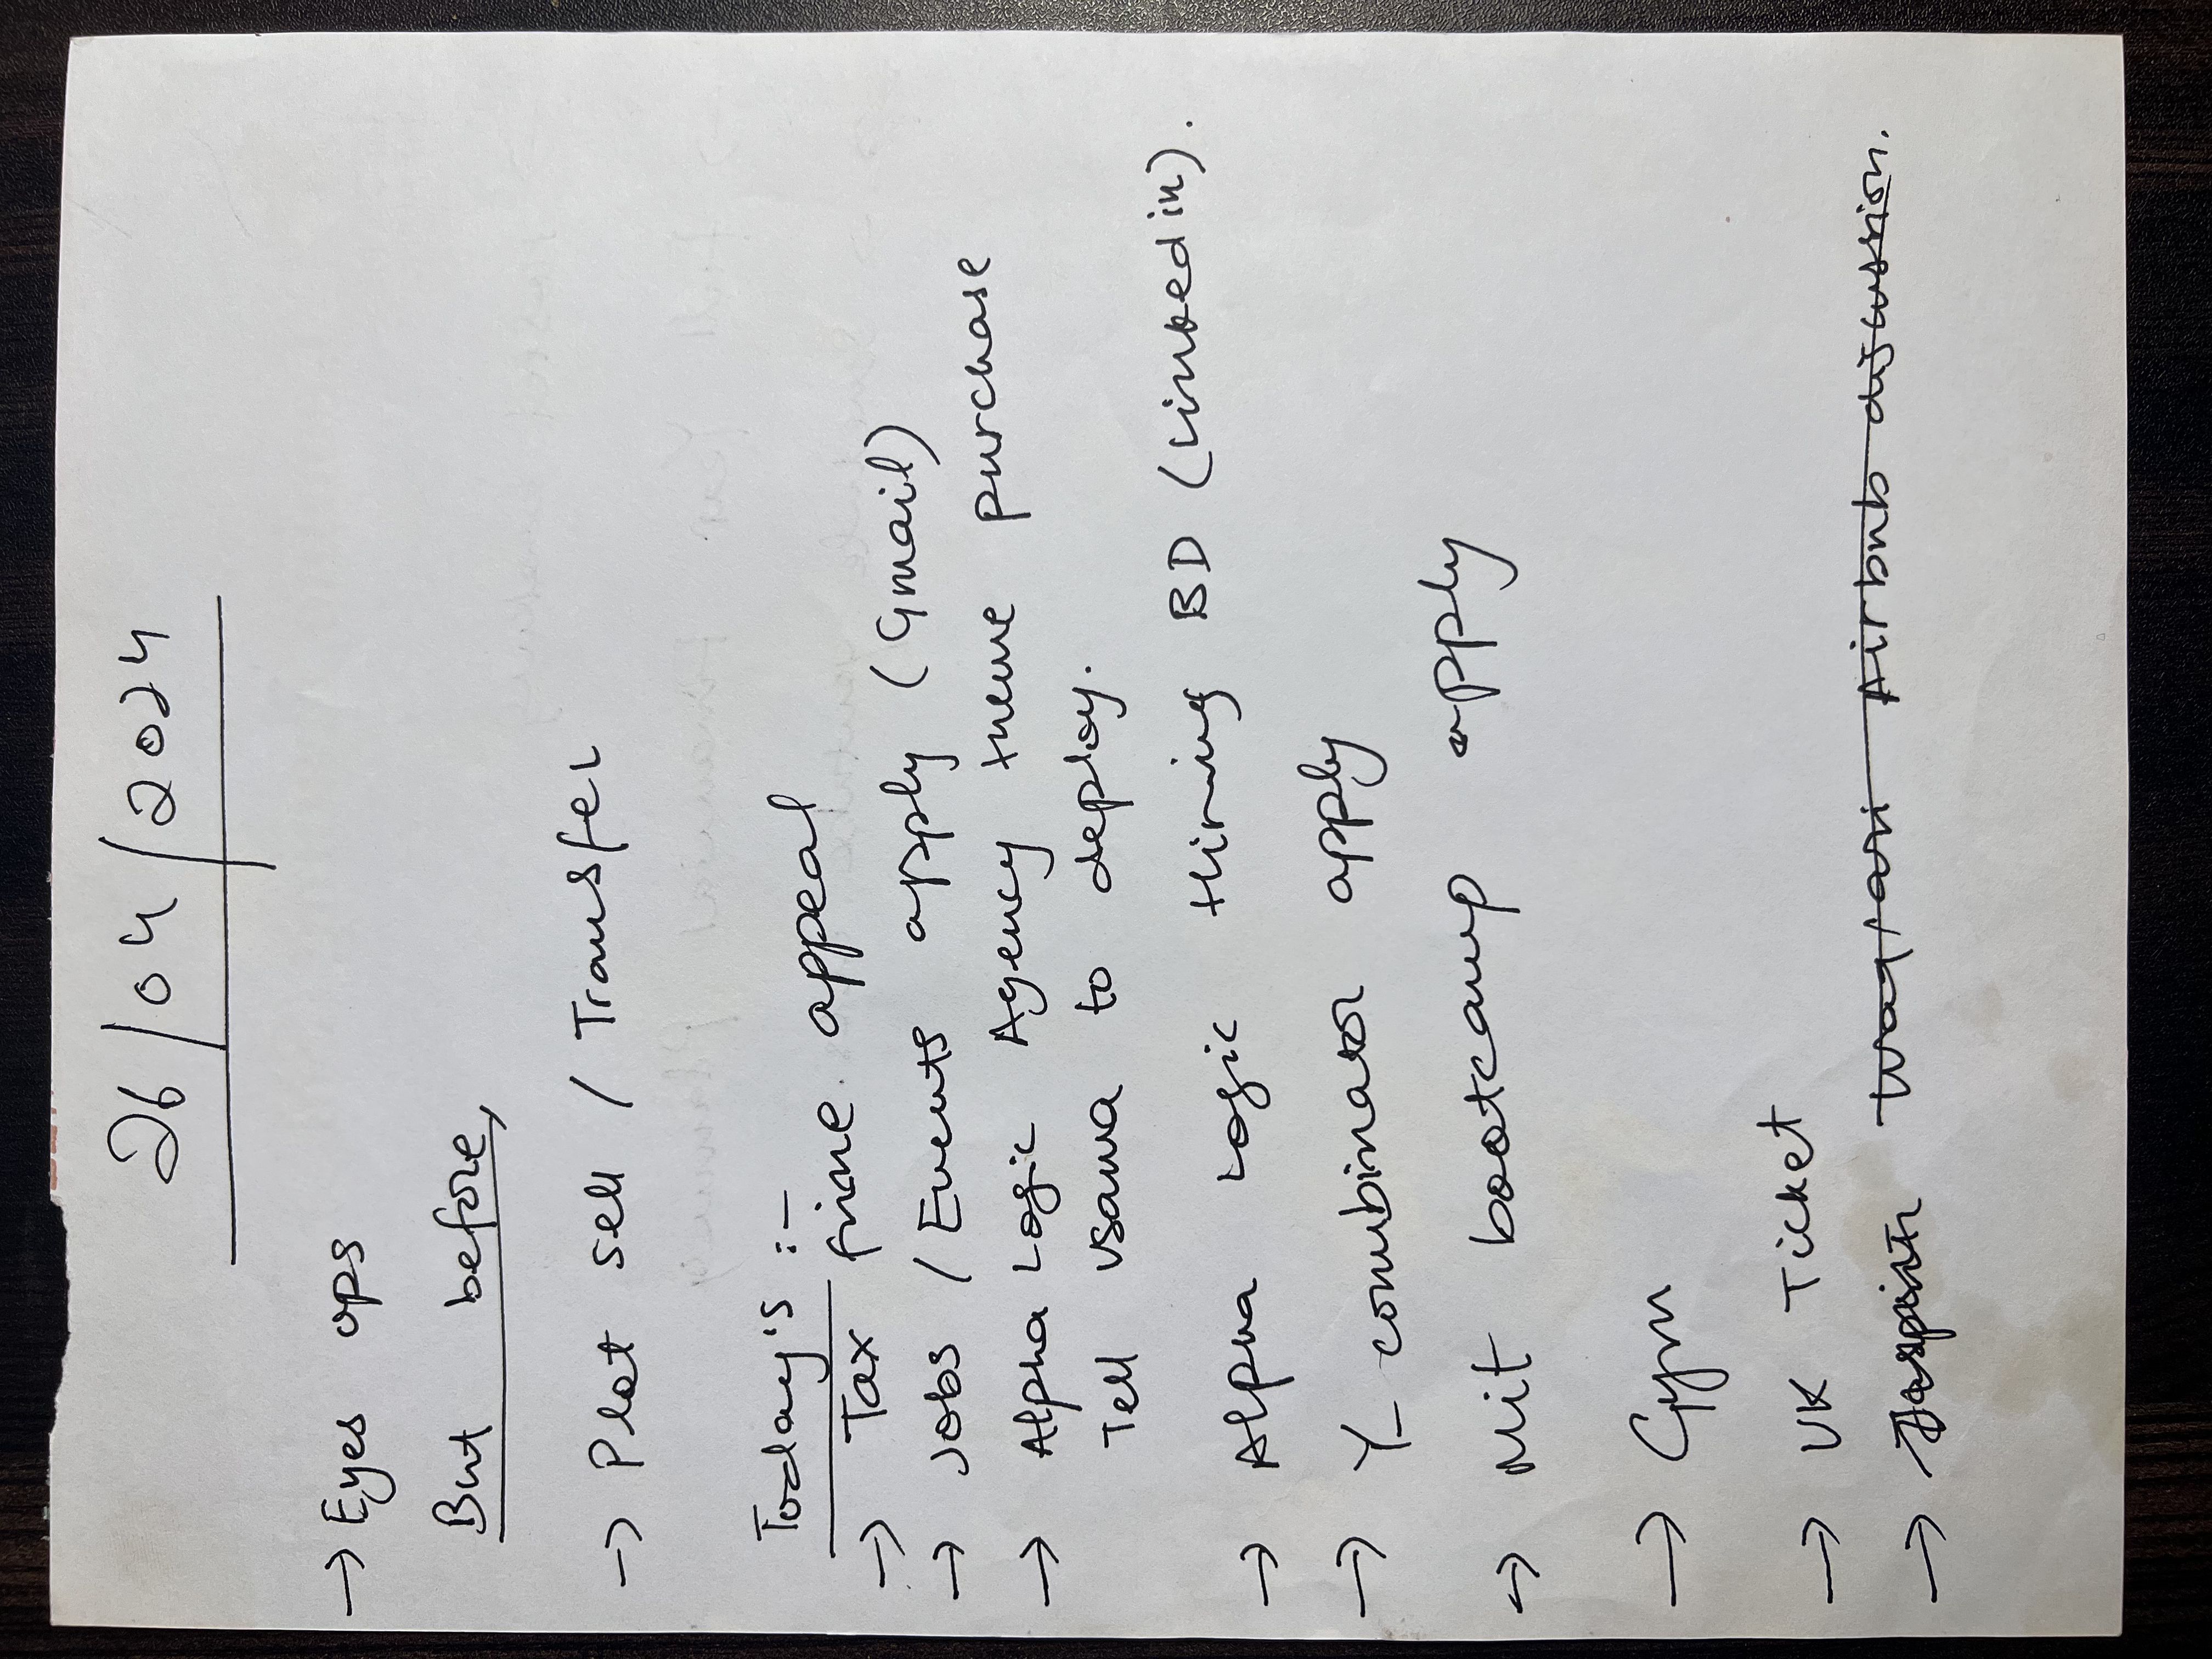 26/04/2024
→ Eyes ops
But before,
→ Plot sell / Transfer
Today's :-
→ Tax fine appeal
→ Jobs / Events apply (Gmail)
→ Alpha Logic Agency theme purchase
Tell Usama to deploy.
→ Alpha Logic Hiring BD (Linkedin).
→ Y_combinator apply
→ Mit bootcamp apply
→ Gym
→ UK Ticket
→ Airbnb